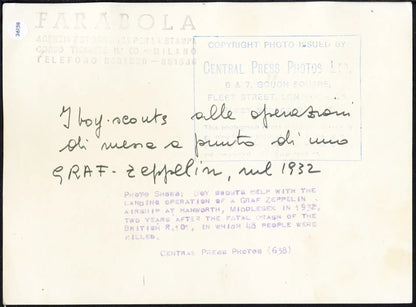 FARABOLA
TELEFONO
COPYRIGHT PHOTO ISSUED BY
CENTRAL PRESS PHOTOS LTD.,
6 & 7, GOUGH SQUARE,
FLEET STREET,
I boy-scouts alle operazioni
di messa a punto di uno
GRAF-Zeppelin, nel 1932
PHOTO SHOWS: BOY SCOUTS HELP WITH THE
LANDING OPERATION OF A GRAF ZEPPELIN
AIRSHIP AT HANWORTH, MIDDLESEX IN 1932,
TWO YEARS AFTER THE FATAL CRASH OF THE
BRITISH R.101, IN WHICH 48 PEOPLE WERE
KILLED.
CENTRAL PRESS PHOTOS (638)